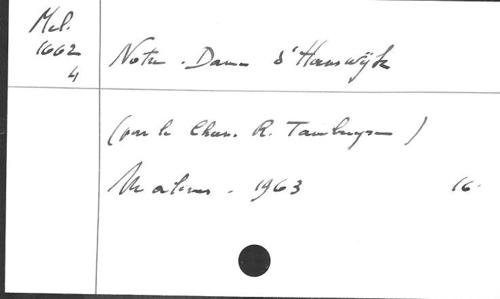 Mel.
1662
4
Notre-Dame d'Hanswijk
(par le Chan. R. Tambuyser)
Malines - 1963 16.